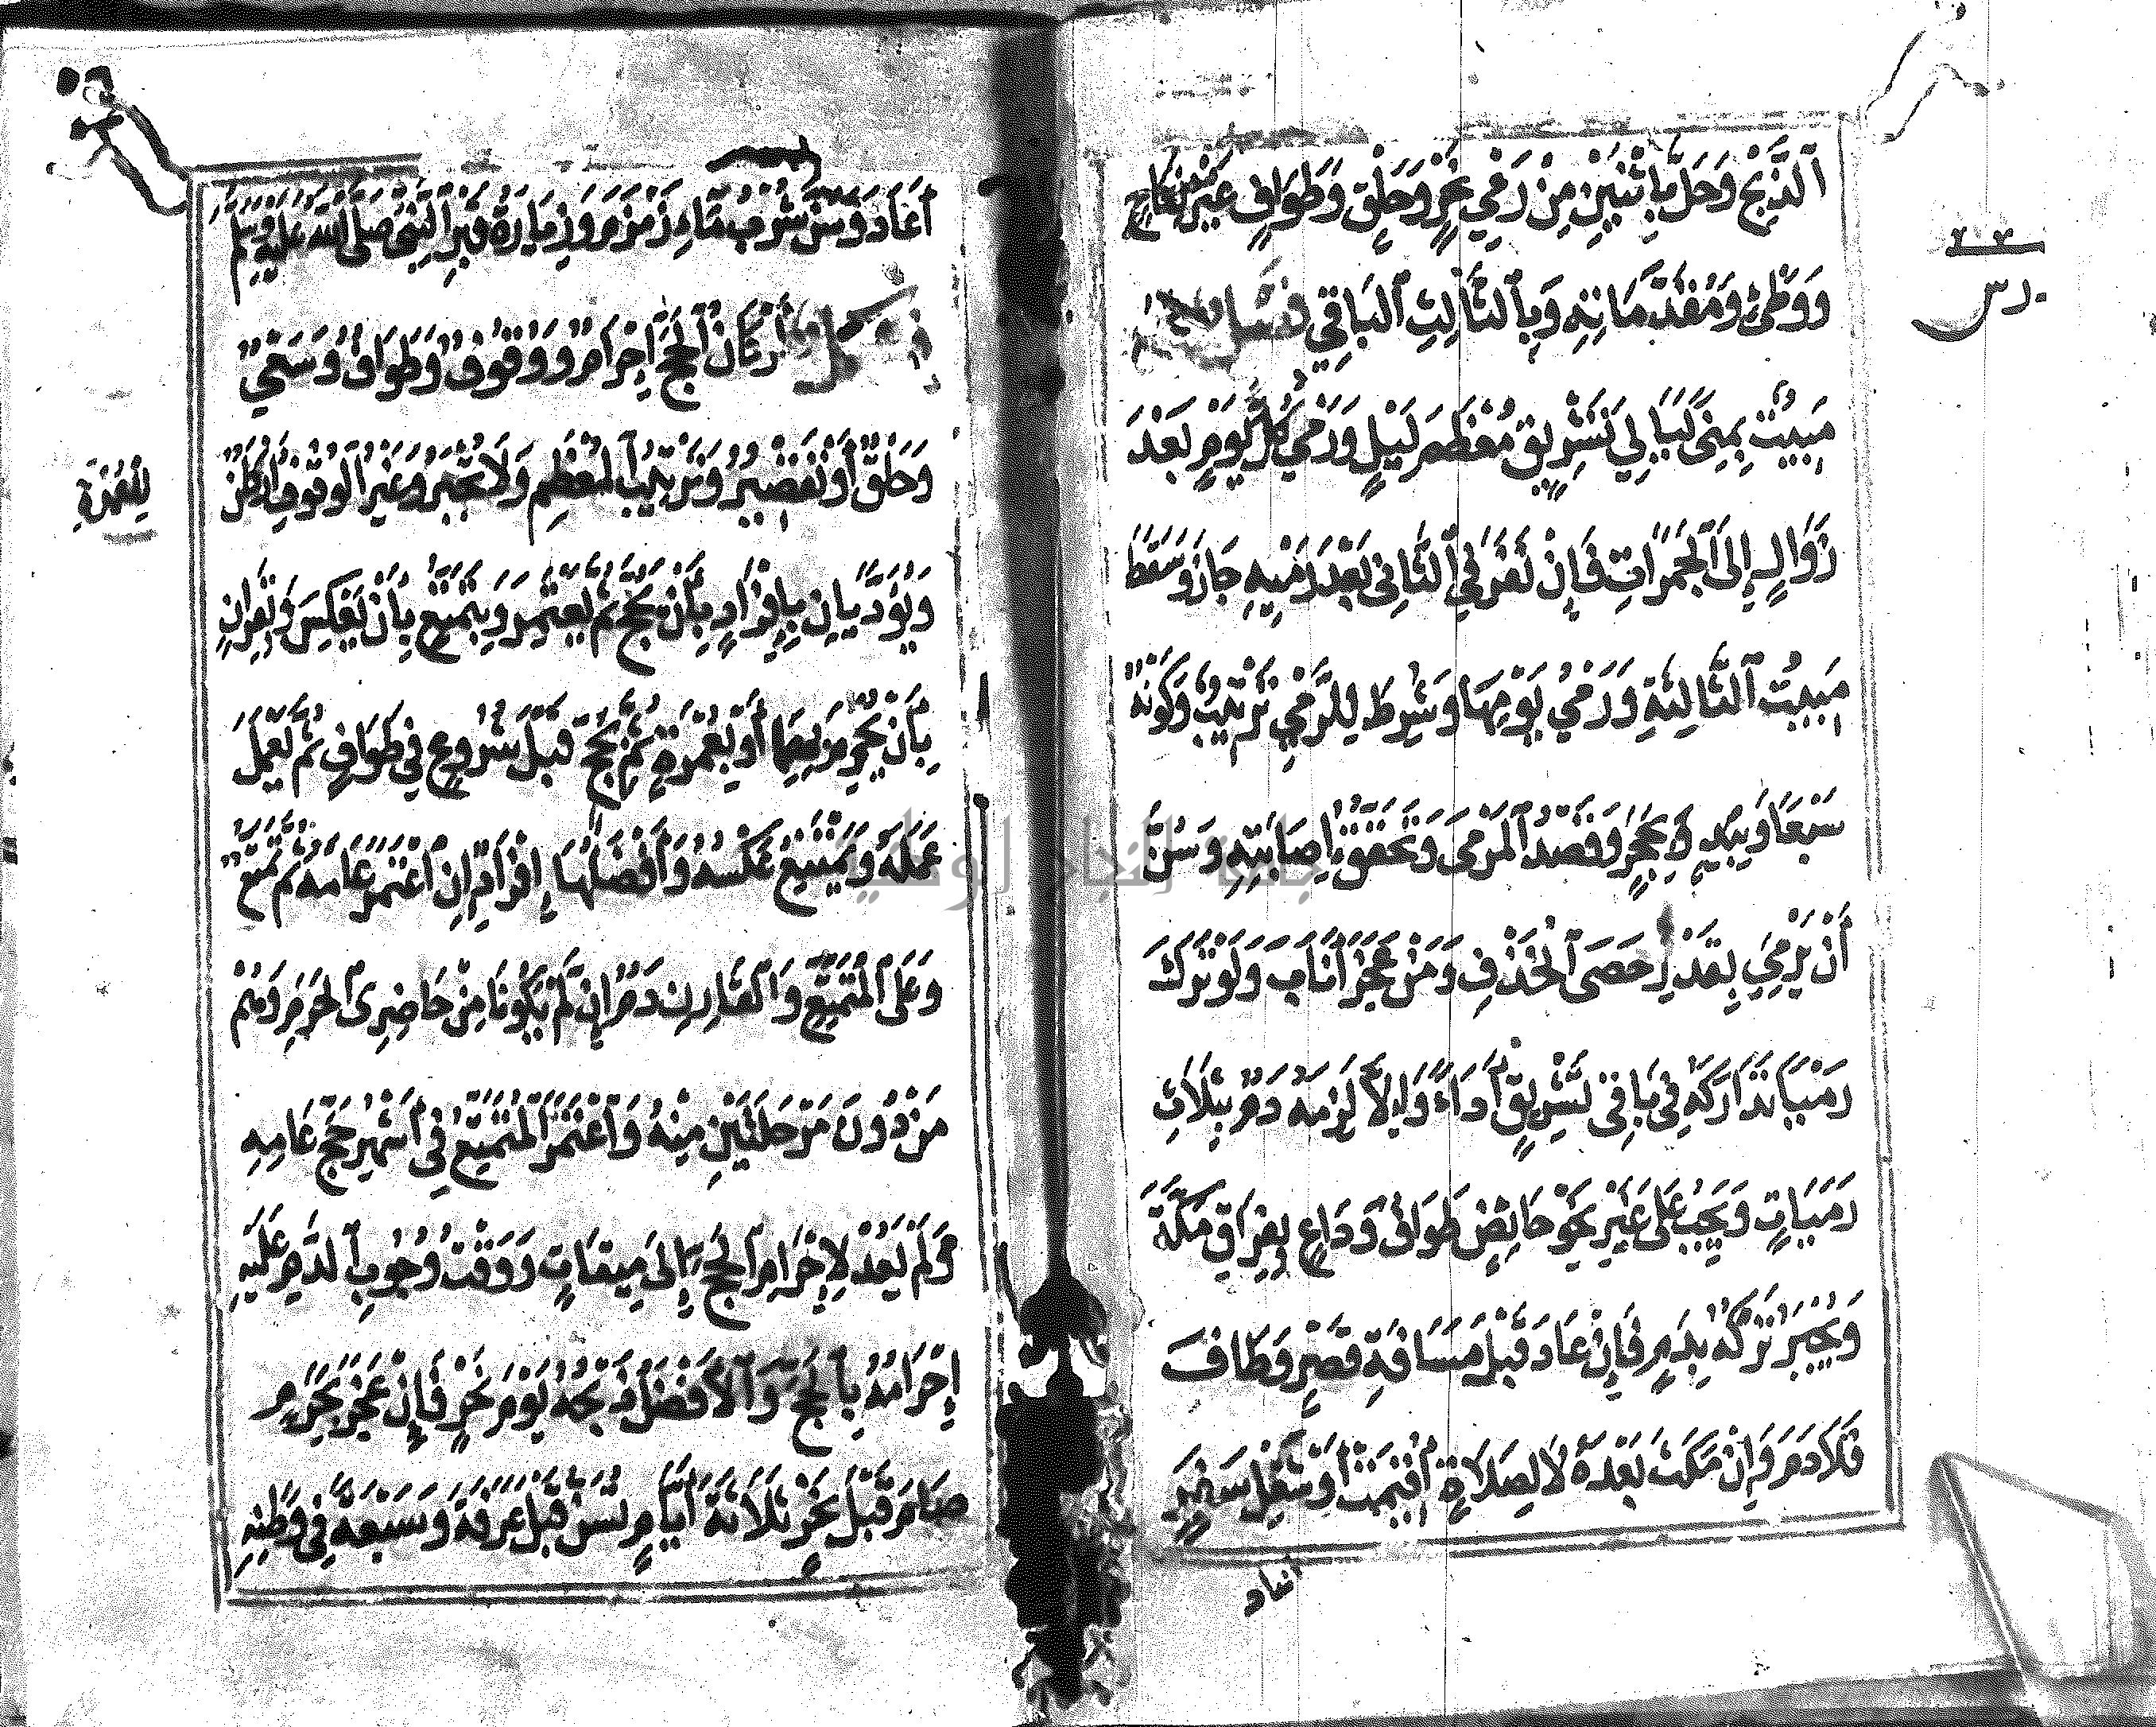 ٱلذَّبْحِ وَحَلَّ بِاثْنَيْنِ مِنْ رَمْيِ نَحْرٍ وَحَلْقٍ وَطَوَافٍ غَيْرُ نِكَاحٍ
وَوَطْئٍ وَمُقَدِّمَاتِهِ وَبِٱلثَّالِثِ ٱلْبَاقِي فَصْلٌ
مَبِيتُ بِمِنًى لَيَالِي تَشْرِيقٍ مُعْظَمَ لَيْلٍ وَرَمْيُ كُلَّ يَوْمٍ بَعْدَ
زَوَالٍ إِلَى ٱلْجَمَرَاتِ فَإِنْ نَفَرَ فِي ٱلثَّانِي بَعْدَ رَمْيِهِ جَازَ وَسَقَطَ
مَبِيتُ ٱلثَّالِثَةِ وَرَمْيُ يَوْمِهَا وَشُرِطَ لِلرَّمْيِ تَرْتِيبٌ وَكَوْنُهُ
سَبْعًا وَبِيَدٍ وَبِحَجَرٍ وَقَصْدُ ٱلْمَرْمَى وَتَحَقُّقُ إِصَابَتِهِ وَسُنَّ
أَنْ يَرْمِيَ بِقَدْرِ حَصَى ٱلْخَذْفِ وَمَنْ عَجَزَ أَنَابَ وَلَوْ تَرَكَ
رَمْيًا تَدَارَكَهُ فِي بَاقِي تَشْرِيقٍ أَدَاءً وَإِلَّا لَزِمَهُ دَمٌ بِثَلَاثِ
رَمَيَاتٍ وَيَجِبُ عَلَى غَيْرِ نَحْوِ حَائِضٍ طَوَافُ وَدَاعٍ بِفِرَاقِ مَكَّةَ
وَيُجْبَرُ تَرْكُهُ بِدَمٍ فَإِنْ عَادَ قَبْلَ مَسَافَةِ قَصْرٍ وَطَافَ
فَلَا دَمَ وَإِنْ مَكَثَ بَعْدَهُ لَا لِصَلَاةٍ أُقِيمَتْ أَوْ شُغْلِ سَفَرٍ
أعاد
أَعَادَ وَسُنَّ شُرْبُ مَاءِ زَمْزَمَ وَزِيَارَةُ قَبْرِ ٱلنَّبِيِّ صَلَّى ٱللّٰهُ عَلَيْهِ وَسَلَّمَ
أَرْكَانُ ٱلْحَجِّ إِحْرَامٌ وَوُقُوفٌ وَطَوَافٌ وَسَعْيٌ
وَحَلْقٌ أَوْ تَقْصِيرٌ وَتَرْتِيبُ ٱلْمُعْظَمِ وَلَا تُجْبَرُ وَغَيْرُ ٱلْوُقُوفِ أَرْكَانٌ
لِلْعُمْرَةِ
وَيُؤَدَّيَانِ بِإِفْرَادٍ بِأَنْ يَحُجَّ ثُمَّ يَعْتَمِرَ وَبِتَمَتُّعٍ بِأَنْ يَعْكِسَ وَبِقِرَانٍ
بِأَنْ يُحْرِمَ بِهِمَا أَوْ بِعُمْرَةٍ ثُمَّ بِحَجٍّ قَبْلَ شُرُوعٍ فِي طَوَافٍ ثُمَّ يَعْمَلَ
عَمَلَهُ وَيَمْتَنِعُ عَكْسُهُ وَأَفْضَلُهَا إِفْرَادٌ إِنِ ٱعْتَمَرَ عَامَهُ ثُمَّ تَمَتُّعٌ
وَعَلَى ٱلْمُتَمَتِّعِ وَٱلْقَارِنِ دَمٌ إِنْ لَمْ يَكُونَا مِنْ حَاضِرِي ٱلْحَرَمِ وَهُمْ
مَنْ دُونَ مَرْحَلَتَيْنِ مِنْهُ وَٱعْتَمَرَ ٱلْمُتَمَتِّعُ فِي أَشْهُرِ حَجِّ عَامِهِ
وَلَمْ يَعُدْ لِإِحْرَامِ ٱلْحَجِّ إِلَى مِيقَاتٍ وَوَقْتُ وُجُوبِ ٱلدَّمِ عَلَيْهِ
إِحْرَامُهُ بِٱلْحَجِّ وَٱلْأَفْضَلُ ذَبْحُهُ يَوْمَ نَحْرٍ فَإِنْ عَجَزَ بِحَرَمٍ
صَامَ قَبْلَ نَحْرٍ ثَلَاثَةَ أَيَّامٍ تُسَنُّ قَبْلَ عَرَفَةَ وَسَبْعَةً فِي وَطَنِهِ
جامعة النجاح الوطنية